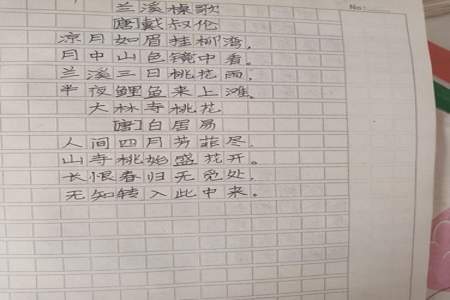 兰溪棹歌
[唐]戴叔伦
凉月如眉挂柳湾,
月中山色镜中看。
兰溪三日桃花雨,
半夜鲤鱼来上滩。
大林寺桃花
[唐]白居易
人间四月芳菲尽,
山寺桃始盛花开。
长恨春归无觅处,
无知转入此中来。
No: